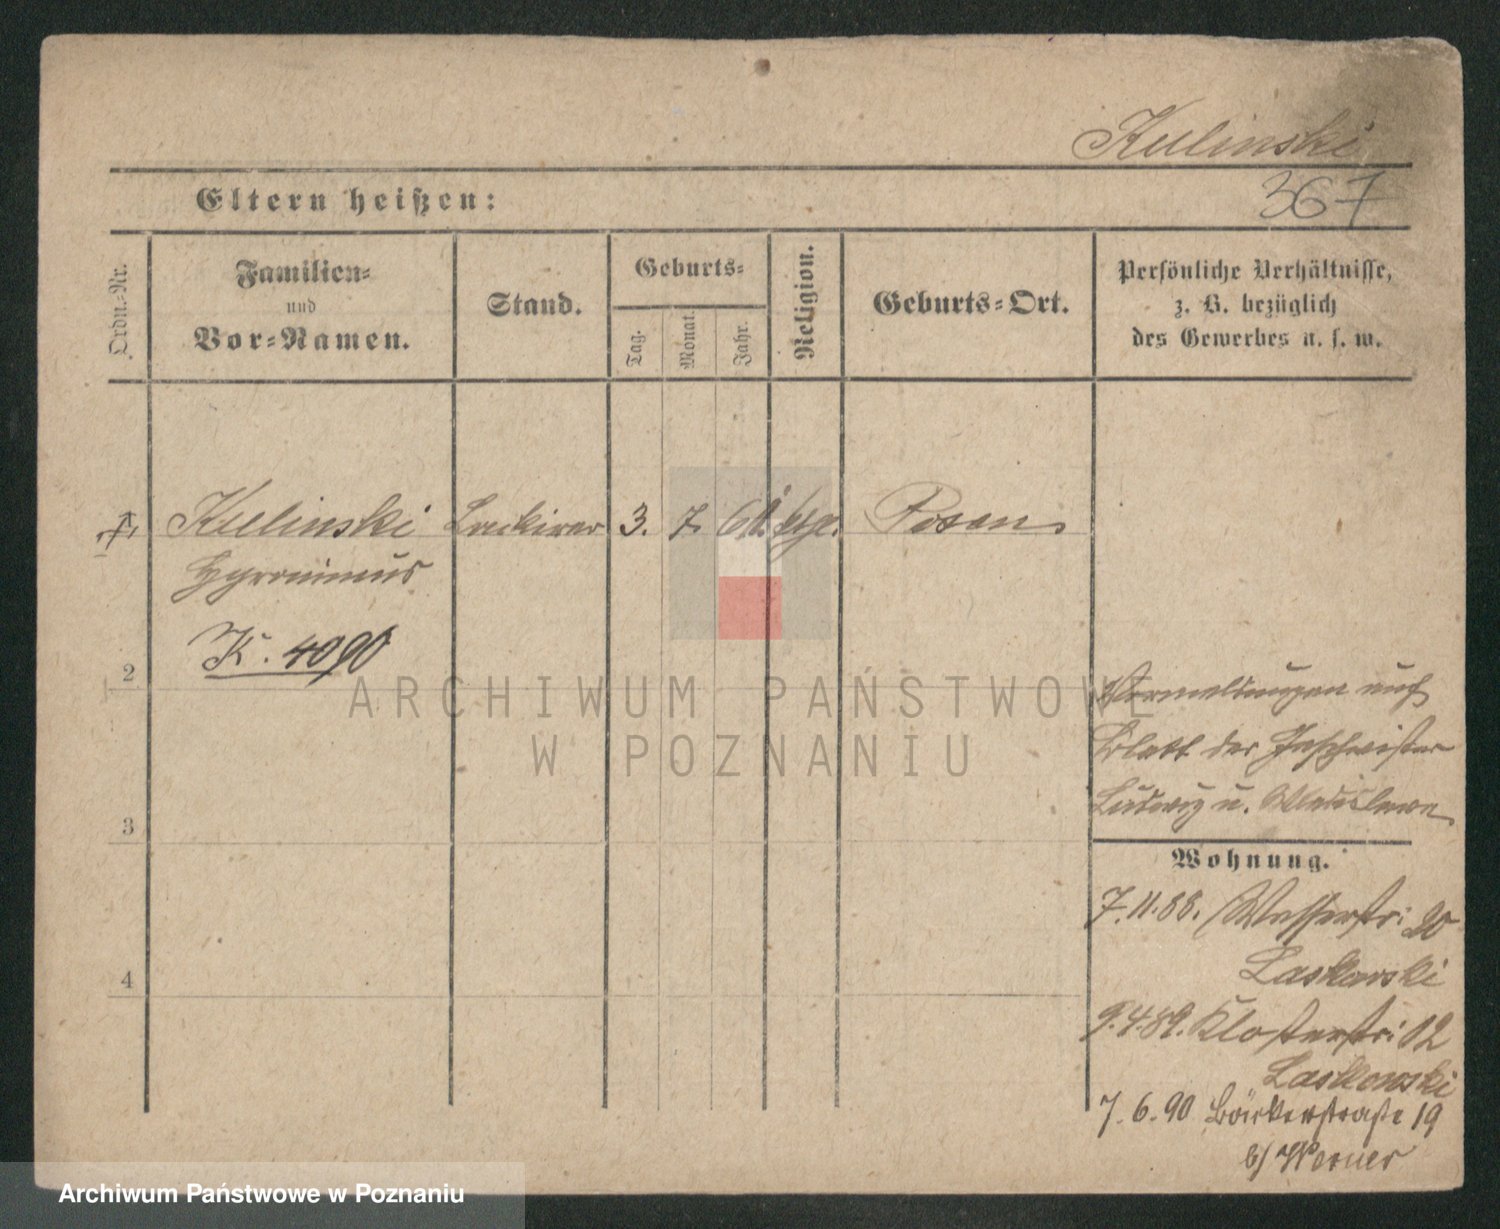 Kulinski
367
Eltern heißen:
Ordn.-Nr.
Familien-
und
Vor-Namen.
Stand.
Geburts-
Tag.
Monat.
Jahr.
Religion.
Geburts-Ort.
Persönliche Verhältnisse,
z. B. bezüglich
des Gewerbes u. s. w.
Kulinski Lackirer 3. 7. Posen
Hyronimus
K. 4090
2
Vermeldungen auf
Blatt der Geschwister
Ludwig u. Wladislawa
3
Wohnung.
7.11.88. Wasserstr: 20
Laskowski
4
9.4.89. Klosterstr: 12
Laskowski
7.6.90 Bäckerstraße 19
b/ Werner
ARCHIWUM PAŃSTWOWE
W POZNANIU
Archiwum Państwowe w Poznaniu